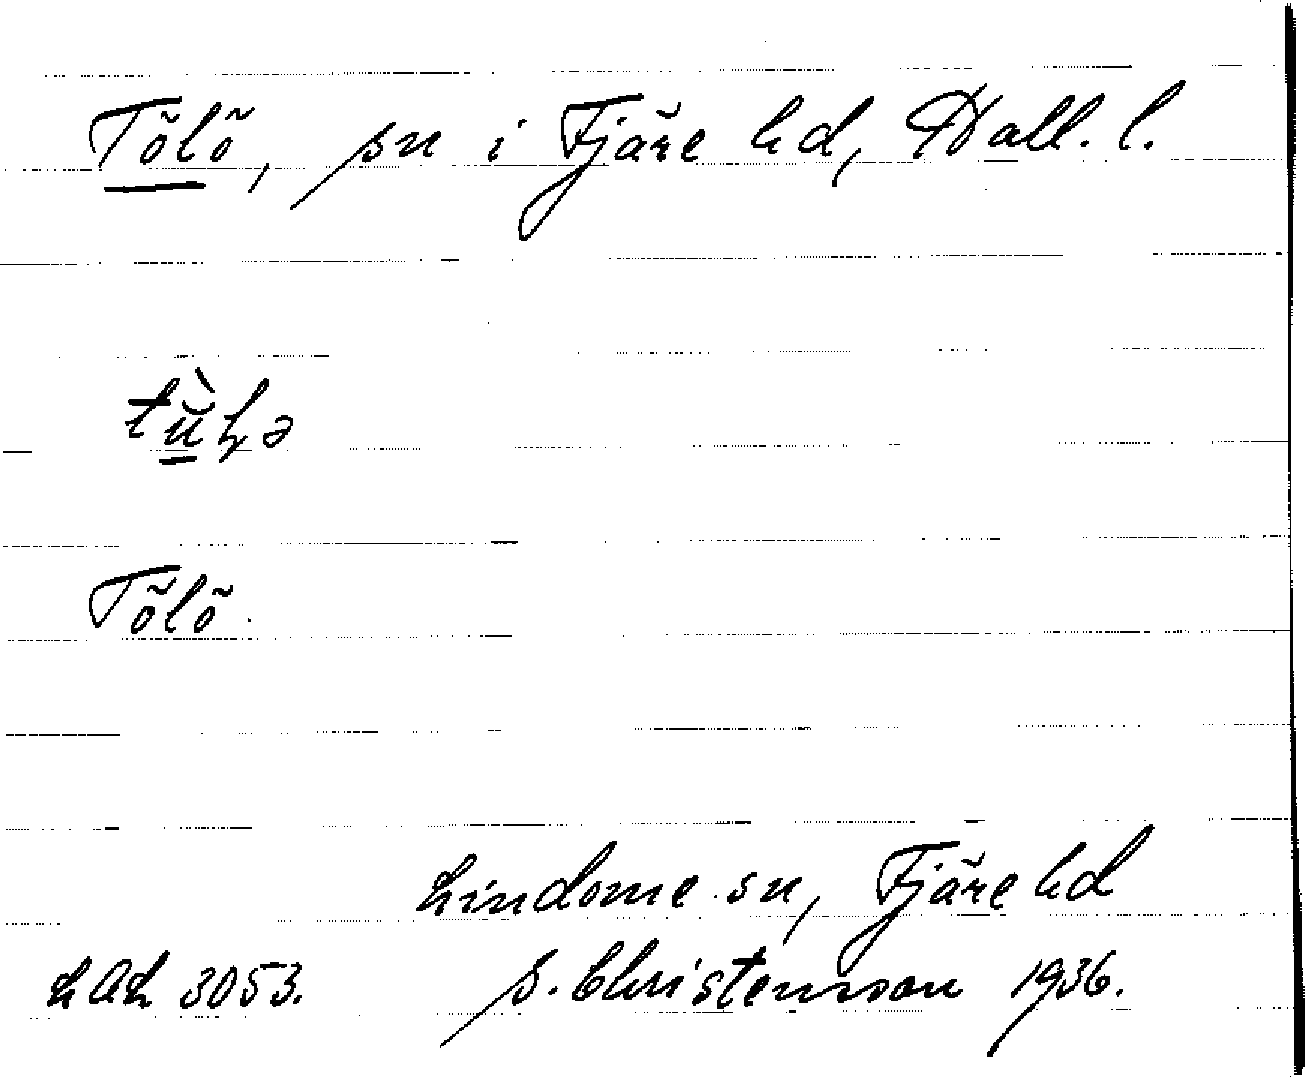 Tölö, sn i Fjäre hd, Hall. l.
Tölö.
Lindome sn, Fjäre hd
LAL 3053. S. Christensson 1936.